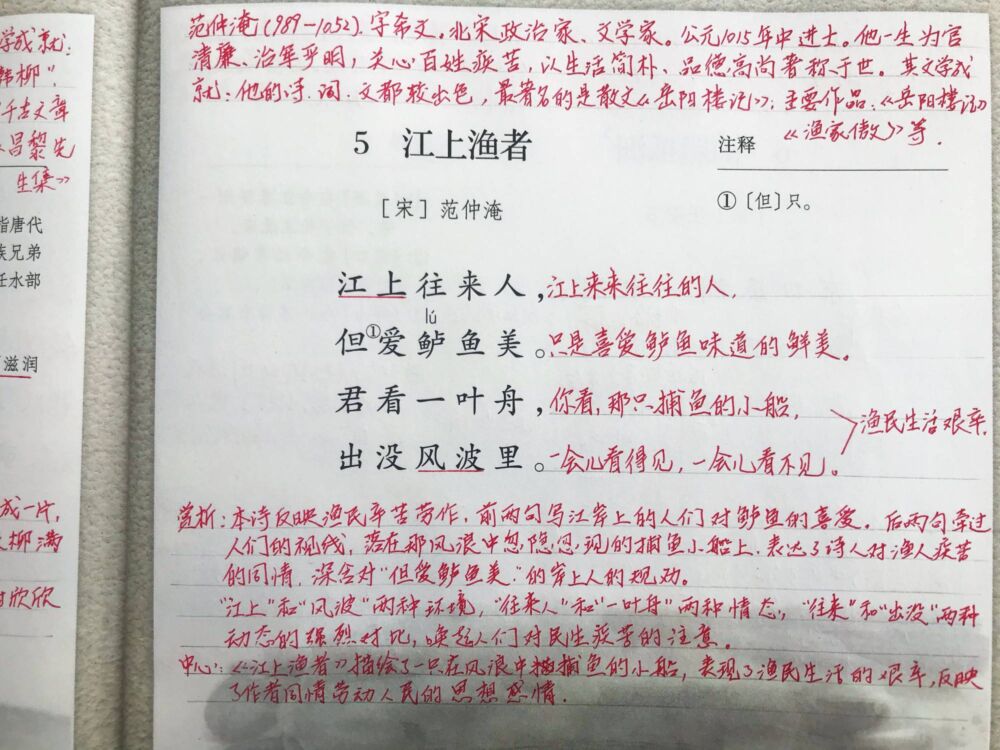 学成就:
韩柳"
千古文章
昌黎先
生集》
指唐代
族兄弟
任水部
滋润
成一片,
柳满
欣欣
范仲淹(989-1052).字希文。北宋政治家、文学家。公元1015年中进士。他一生为官
清廉、治军严明,关心百姓疾苦,以生活简朴、品德高尚著称于世。其文学成
就:他的诗.词.文都较出色,最著名的是散文《岳阳楼记》;主要作品:《岳阳楼记》
《渔家傲》等.
5 江上渔者
注释
[宋]范仲淹
①〔但〕只。
江上往来人,江上来来往往的人,
lú
但①爱鲈鱼美。只是喜爱鲈鱼味道的鲜美。
君看一叶舟,你看,那只捕鱼的小船,
渔民生活艰辛.
出没风波里。一会儿看得见,一会儿看不见。
赏析:本诗反映渔民辛苦劳作,前两句写江岸上的人们对鲈鱼的喜爱。后两句牵过
人们的视线,落在那风浪中忽隐忽现的捕鱼小船上.表达了诗人对渔人疾苦
的同情,深含对"但爱鲈鱼美"的岸上人的规劝。
"江上"和"风波"两种环境,"往来人"和"一叶舟"两种情态,"往来"和"出没"两种
动态的强烈对比,唤起人们对民生疾苦的注意.
中心:《江上渔者》描绘了一只在风浪中捕鱼的小船,表现了渔民生活的艰辛,反映
了作者同情劳动人民的思想感情.